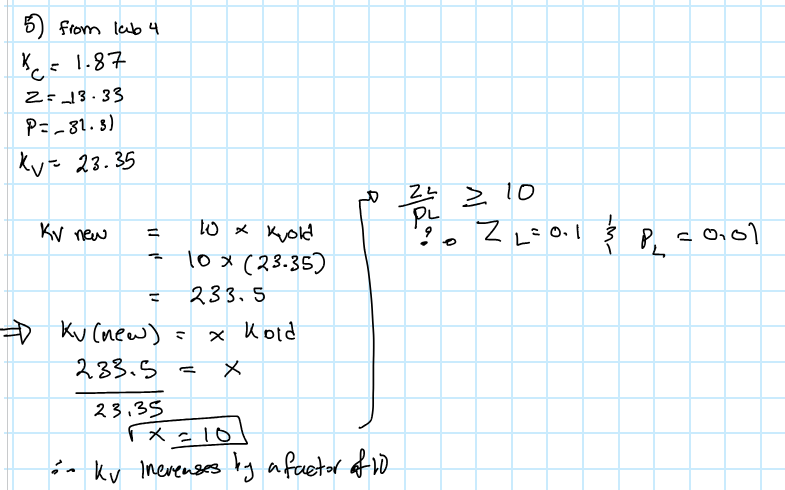 5) from lab 4
Kc = 1.87
Z = -13.33
P = -81.81
Kv = 23.35
Kv new = 10 x Kvold
= 10 x (23.35)
= 233.5
⇒ Kv (new) = x Kold
233.5 / 23.35 = x
x = 10
∴ Kv increases by a factor of 10
→ ZL / PL ≥ 10
∴ ZL = 0.1 & PL = 0.01